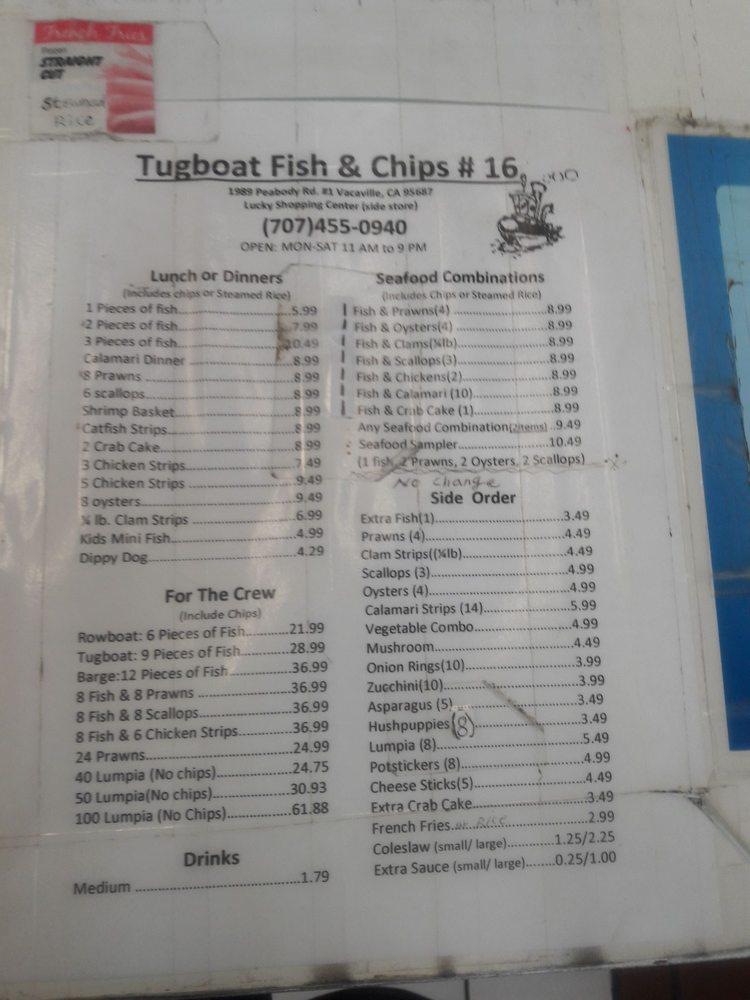 French Fries
Frozen
STRAIGHT
CUT
Steamed
Rice
Tugboat Fish & Chips # 16
1989 Peabody Rd. #1 Vacaville, CA 95687
Lucky Shopping Center (side store)
(707)455-0940
OPEN: MON-SAT 11 AM to 9 PM
Lunch or Dinners
(Includes chips or Steamed Rice)
1 Pieces of fish 5.99
2 Pieces of fish 7.99
3 Pieces of fish 10.49
Calamari Dinner 8.99
8 Prawns 8.99
6 scallops 8.99
Shrimp Basket 8.99
Catfish Strips 8.99
2 Crab Cake 8.99
3 Chicken Strips 7.49
5 Chicken Strips 9.49
8 oysters 9.49
¼ lb. Clam Strips 6.99
Kids Mini Fish 4.99
Dippy Dog 4.29
For The Crew
(Include Chips)
Rowboat: 6 Pieces of Fish 21.99
Tugboat: 9 Pieces of Fish 28.99
Barge:12 Pieces of Fish 36.99
8 Fish & 8 Prawns 36.99
8 Fish & 8 Scallops 36.99
8 Fish & 6 Chicken Strips 36.99
24 Prawns 24.99
40 Lumpia (No chips) 24.75
50 Lumpia(No chips) 30.93
100 Lumpia (No Chips) 61.88
Drinks
Medium 1.79
Seafood Combinations
(Includes Chips or Steamed Rice)
Fish & Prawns(4) 8.99
Fish & Oysters(4) 8.99
Fish & Clams(¼lb) 8.99
Fish & Scallops(3) 8.99
Fish & Chickens(2) 8.99
Fish & Calamari (10) 8.99
Fish & Crab Cake (1) 8.99
Any Seafood Combination(2items) 9.49
Seafood Sampler 10.49
(1 fish, 2 Prawns, 2 Oysters, 2 Scallops)
No Change
Side Order
Extra Fish(1) 3.49
Prawns (4) 4.49
Clam Strips((¼lb) 4.49
Scallops (3) 4.99
Oysters (4) 4.99
Calamari Strips (14) 5.99
Vegetable Combo 4.99
Mushroom 4.49
Onion Rings(10) 3.99
Zucchini(10) 3.99
Asparagus (5) 3.49
Hushpuppies (8) 3.49
Lumpia (8) 5.49
Potstickers (8) 4.99
Cheese Sticks(5) 4.49
Extra Crab Cake 3.49
French Fries or Rice 2.99
Coleslaw (small/ large) 1.25/2.25
Extra Sauce (small/ large) 0.25/1.00